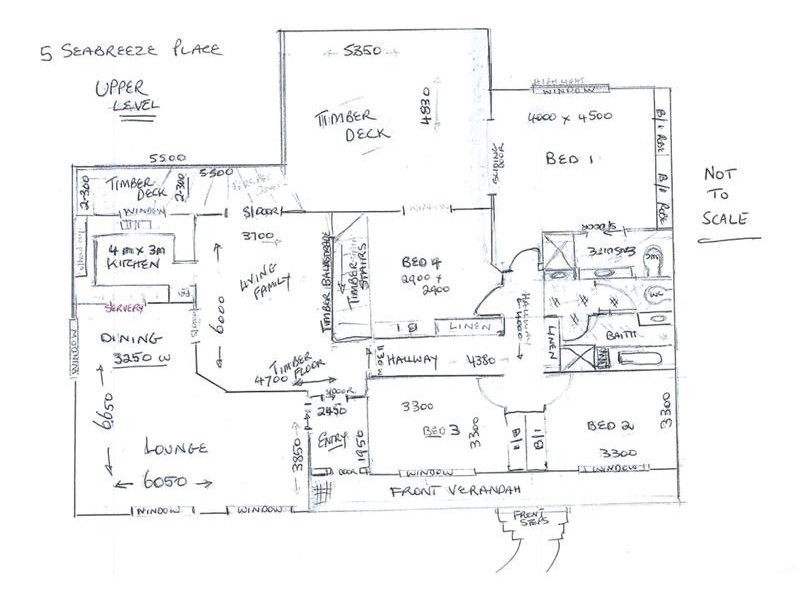 5 SEABREEZE PLACE
UPPER
LEVEL
5350
4830
TIMBER
DECK
HIGHLIGHT
WINDOW
4000 x 4500
BED 1
B/I ROBE
B/I ROBE
SLIDING
DOOR
NOT
TO
SCALE
5500
5500
TIMBER
DECK
2300
2300
WINDOW
S/DOOR
WINDOW
S/DOOR
ENSUITE
WC
4m x 3m
KITCHEN
3700
LIVING
FAMILY
6000
TIMBER BALUSTRADE
TIMBER
STAIRS
BED 4
2900 x
2900
B I
LINEN
HALLWAY
4000
WC
BATH
LINEN
SERVERY
S/DOOR
DINING
3250 W
WINDOW
TIMBER
FLOOR
4700
HALLWAY 4380
S/DOOR
2450
ENTRY
1950
DOOR
6650
LOUNGE
6050
3850
3300
BED 3
3300
B/I
B/I
BED 2
3300
3300
WINDOW
WINDOW
FRONT VERANDAH
WINDOW
WINDOW
FRONT
STEPS